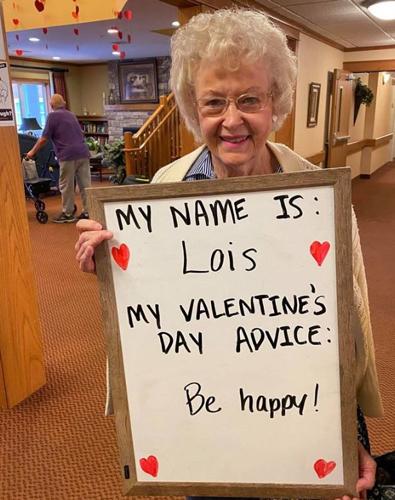 MY NAME IS:
Lois
MY VALENTINE'S
DAY ADVICE:
Be happy!